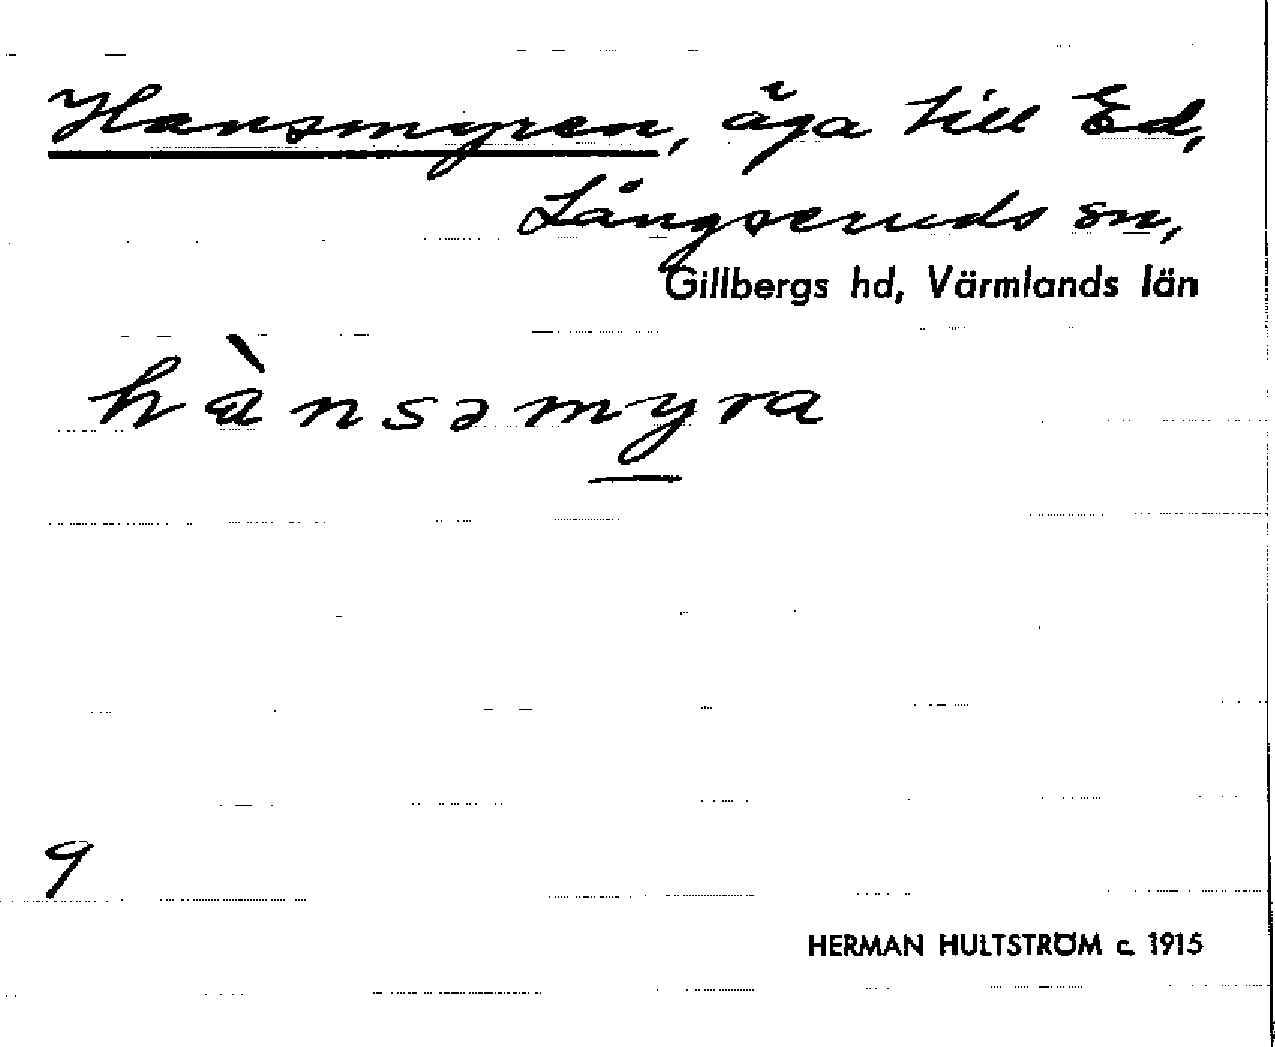 Hansmyren, äga till Ed,
Långseruds sn,
Gillbergs hd, Värmlands län
hànsəmyra
9
HERMAN HULTSTRÖM c. 1915